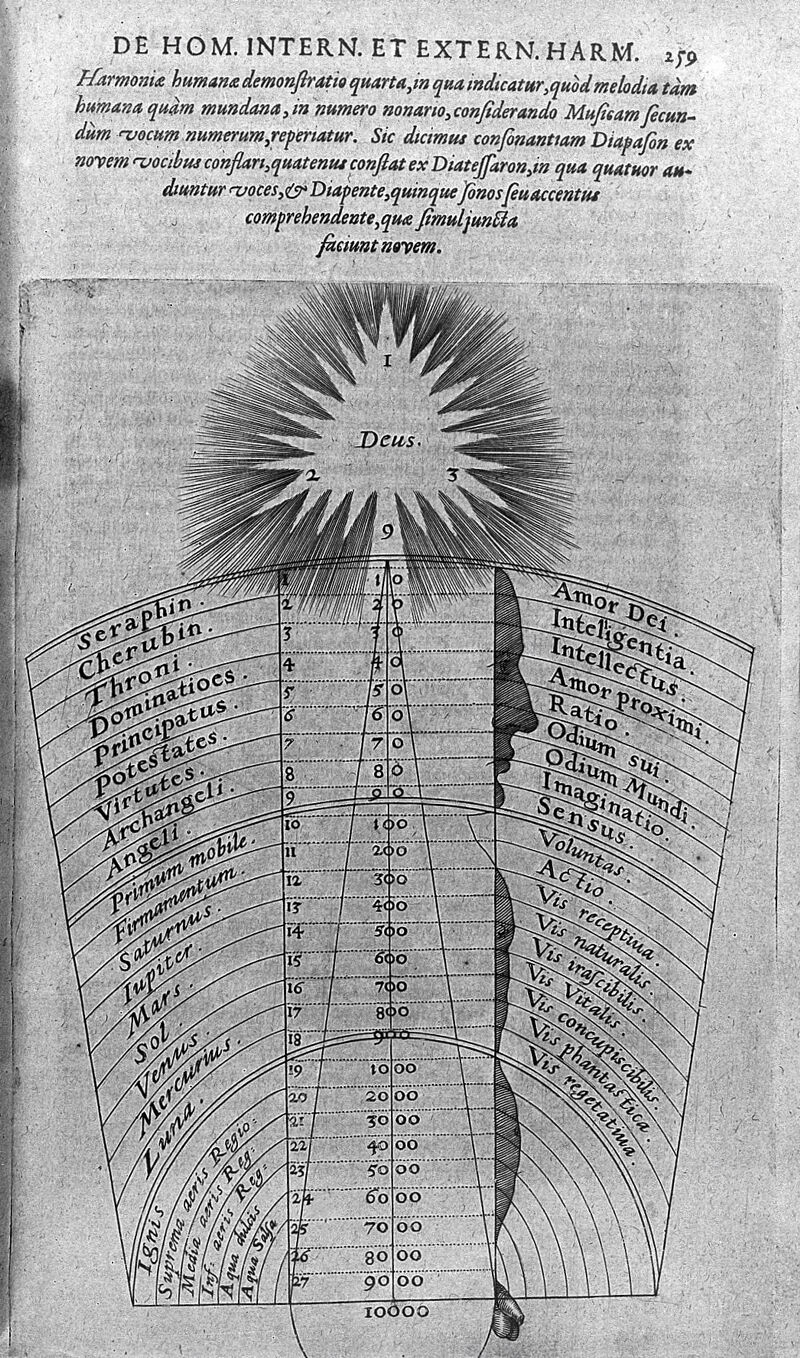 DE HOM. INTERN. ET EXTERN. HARM. 259
Harmoniæ humanæ demonſtratio quarta, in qua indicatur, quòd melodia tàm
humana quàm mundana, in numero nonario, conſiderando Muſicam ſecun-
dùm vocum numerum, reperiatur. Sic dicimus conſonantiam Diapaſon ex
novem vocibus conflari, quatenus conſtat ex Diateſſaron, in qua quatuor au-
diuntur voces, & Diapente, quinque ſonos ſeu accentus
comprehendente, quæ ſimul juncta
faciunt novem.
1
Deus.
2 3
9
Seraphin. 1 10 Amor Dei.
Cherubin. 2 20 Inteligentia.
Throni. 3 30 Intellectus.
Dominatioes. 4 40 Amor proximi.
Principatus. 5 50 Ratio.
Potestates. 6 60 Odium sui.
Virtutes. 7 70 Odium Mundi.
Archangeli. 8 80 Imaginatio.
Angeli. 9 90 Sensus.
Primum mobile. 10 100 Voluntas.
Firmamentum. 11 200 Actio.
Saturnus. 12 300 Vis receptiua.
Iupiter. 13 400 Vis naturalis.
Mars. 14 500 Vis iraſcibilis.
Sol. 15 600 Vis Vitalis.
Venus. 16 700 Vis concupiscibilis.
Mercurius. 17 800 Vis phantastica.
Luna. 18 900 Vis vegetatiua.
Ignis 19 1000
Suprema aeris Regio: 20 2000
Media aeris Reg: 21 3000
Inf: aeris Reg: 22 4000
Aqua dulcis 23 5000
Aqua Salsa 24 6000
25 7000
26 8000
27 9000
10000